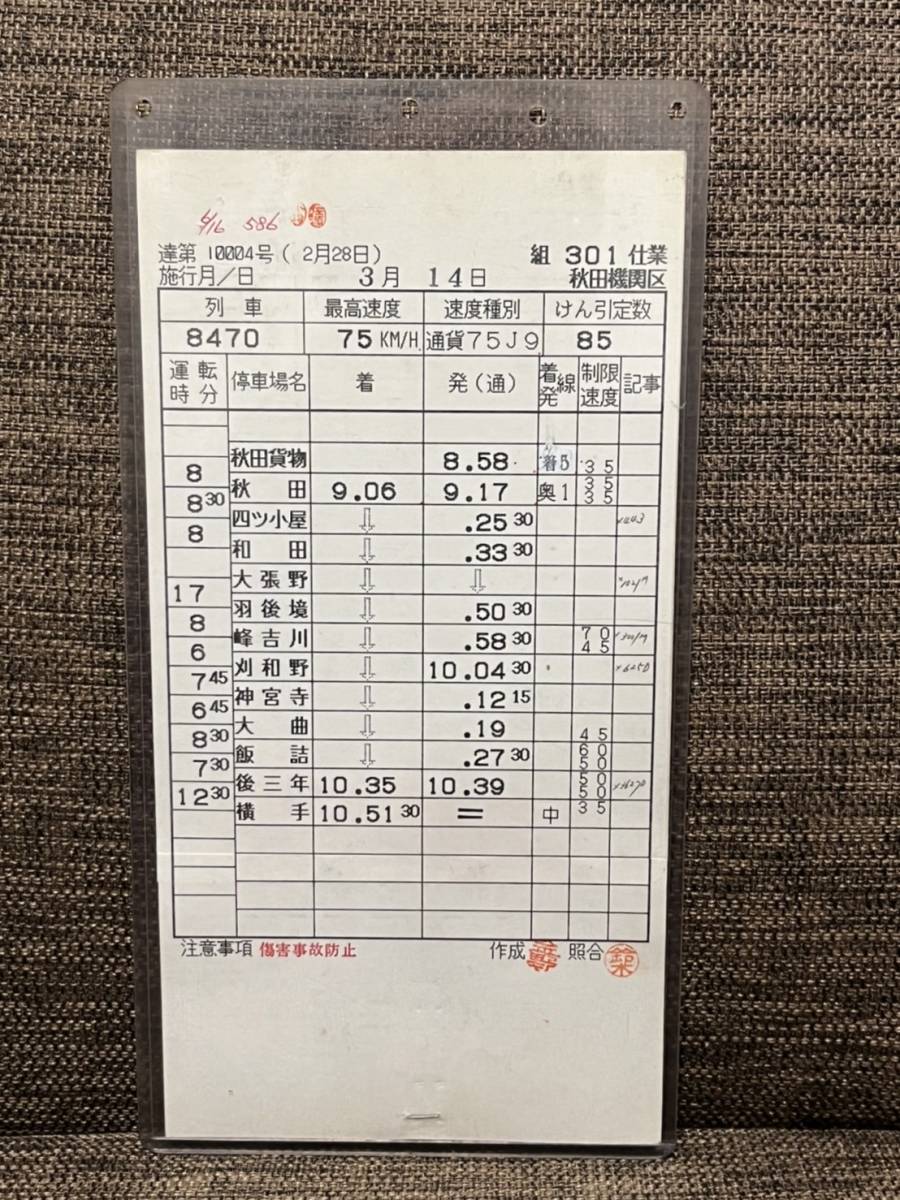 4/16 586
達第 10004号( 2月28日) 組 301仕業
施行月/日 3月 14日 秋田機関区
列車 最高速度 速度種別 けん引定数
8470 75 KM/H 通貨75J9 85
運転時分 停車場名 着 発(通) 着発線 制限速度 記事
秋田貨物 8.58 着5 35
8
秋田 9.06 9.17 奥1 35 35
8 30
四ツ小屋 ⇩ .25 30
8
和田 ⇩ .33 30
大張野 ⇩ ⇩
17
羽後境 ⇩ .50 30
8
峰吉川 ⇩ .58 30 70 45
6
刈和野 ⇩ 10.04 30
7 45
神宮寺 ⇩ .12 15
6 45
大曲 ⇩ .19 45
8 30
飯詰 ⇩ .27 30 60 50
7 30
後三年 10.35 10.39 50 50
12 30
横手 10.51 30 = 中 35
注意事項 傷害事故防止 作成 照合 鈴木